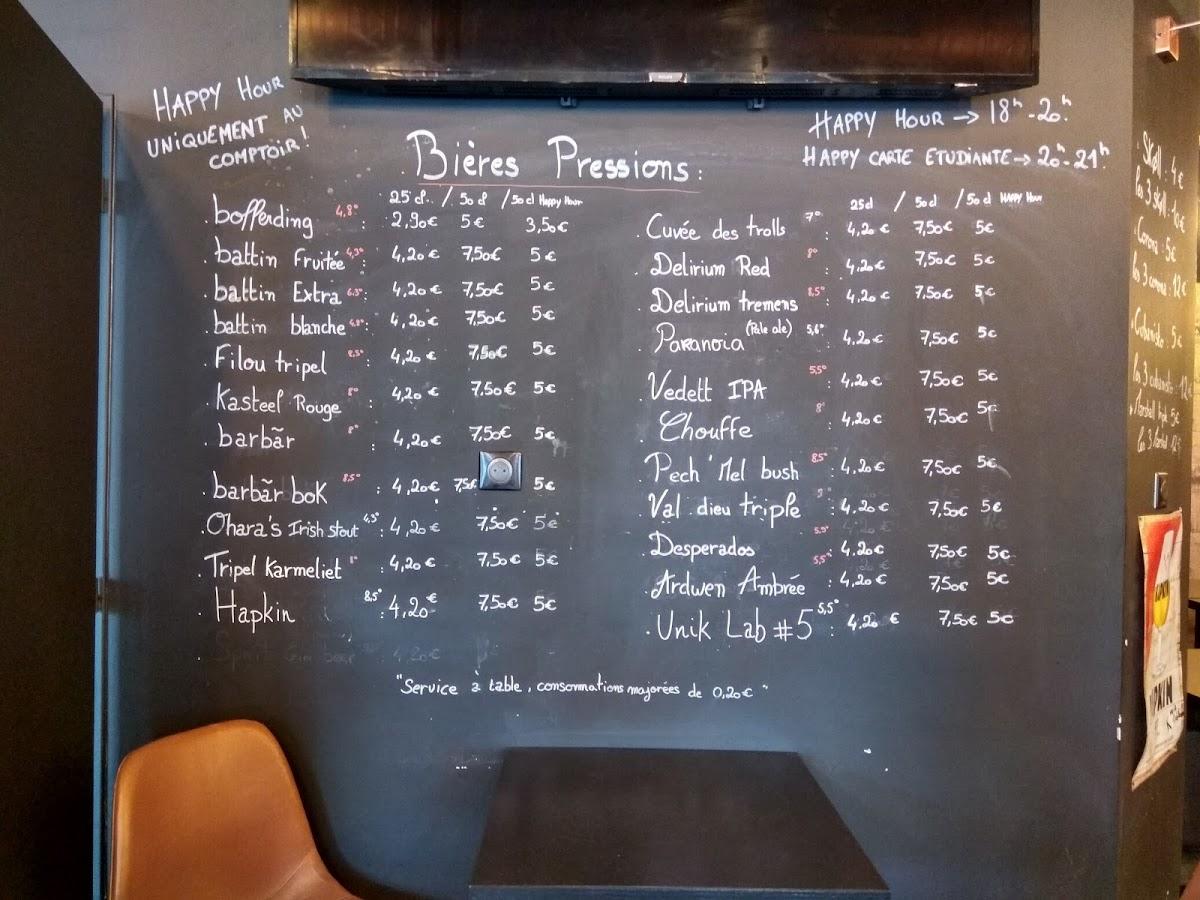 HAPPY HOUR
UNIQUEMENT AU
COMPTOIR!
HAPPY HOUR → 18h - 20h.
HAPPY CARTE ETUDIANTE → 20h - 21h
Bières Pressions :
25 cl / 50 cl / 50 cl HAPPY HOUR
. bofferding 4,8° : 2,90€ 5€ 3,50€
. battin Fruitée 4,3° : 4,20€ 7,50€ 5€
. battin Extra 6.3° : 4,20€ 7,50€ 5€
. battin blanche 4.8° : 4,20€ 7,50€ 5€
. Filou tripel 8,5° : 4,20€ 7,50€ 5€
. Kasteel Rouge 8° : 4,20€ 7,50€ 5€
. barbãr 8° : 4,20€ 7,50€ 5€
. barbãr bok 8.5° : 4,20€ 7,5€ 5€
. Ohara's Irish stout 4,3° : 4,20€ 7,50€ 5€
. Tripel Karmeliet 8° : 4,20€ 7,50€ 5€
. Hapkin 8,5° : 4,20€ 7,50€ 5€
25cl / 50cl / 50cl HAPPY HOUR
. Cuvée des trolls 7° : 4,20€ 7,50€ 5€
. Delirium Red 8° : 4,20€ 7,50€ 5€
. Delirium tremens 8,5° : 4,20€ 7,50€ 5€
. Paranoia (Pale ale) 5,6° : 4,20€ 7,50€ 5€
. Vedett IPA 5,5° : 4,20€ 7,50€ 5€
. Chouffe 8° : 4,20€ 7,50€ 5€
. Pech'Mel bush 8,5° : 4,20€ 7,50€ 5€
. Val dieu triple 9° : 4,20€ 7,50€ 5€
. Desperados 5.9° : 4.20€ 7,50€ 5€
. Ardwen Ambrée 5,5° : 4,20€ 7,50€ 5€
. Unik Lab #5 5,5° : 4,20€ 7,50€ 5€
"Service à table, consommations majorées de 0,20€"
Skoll : 4€
les 3 skoll : 10€
. Corona : 5€
les 3 corona : 12€
. Cubanisto : 5€
les 3 cubanisto : 12€